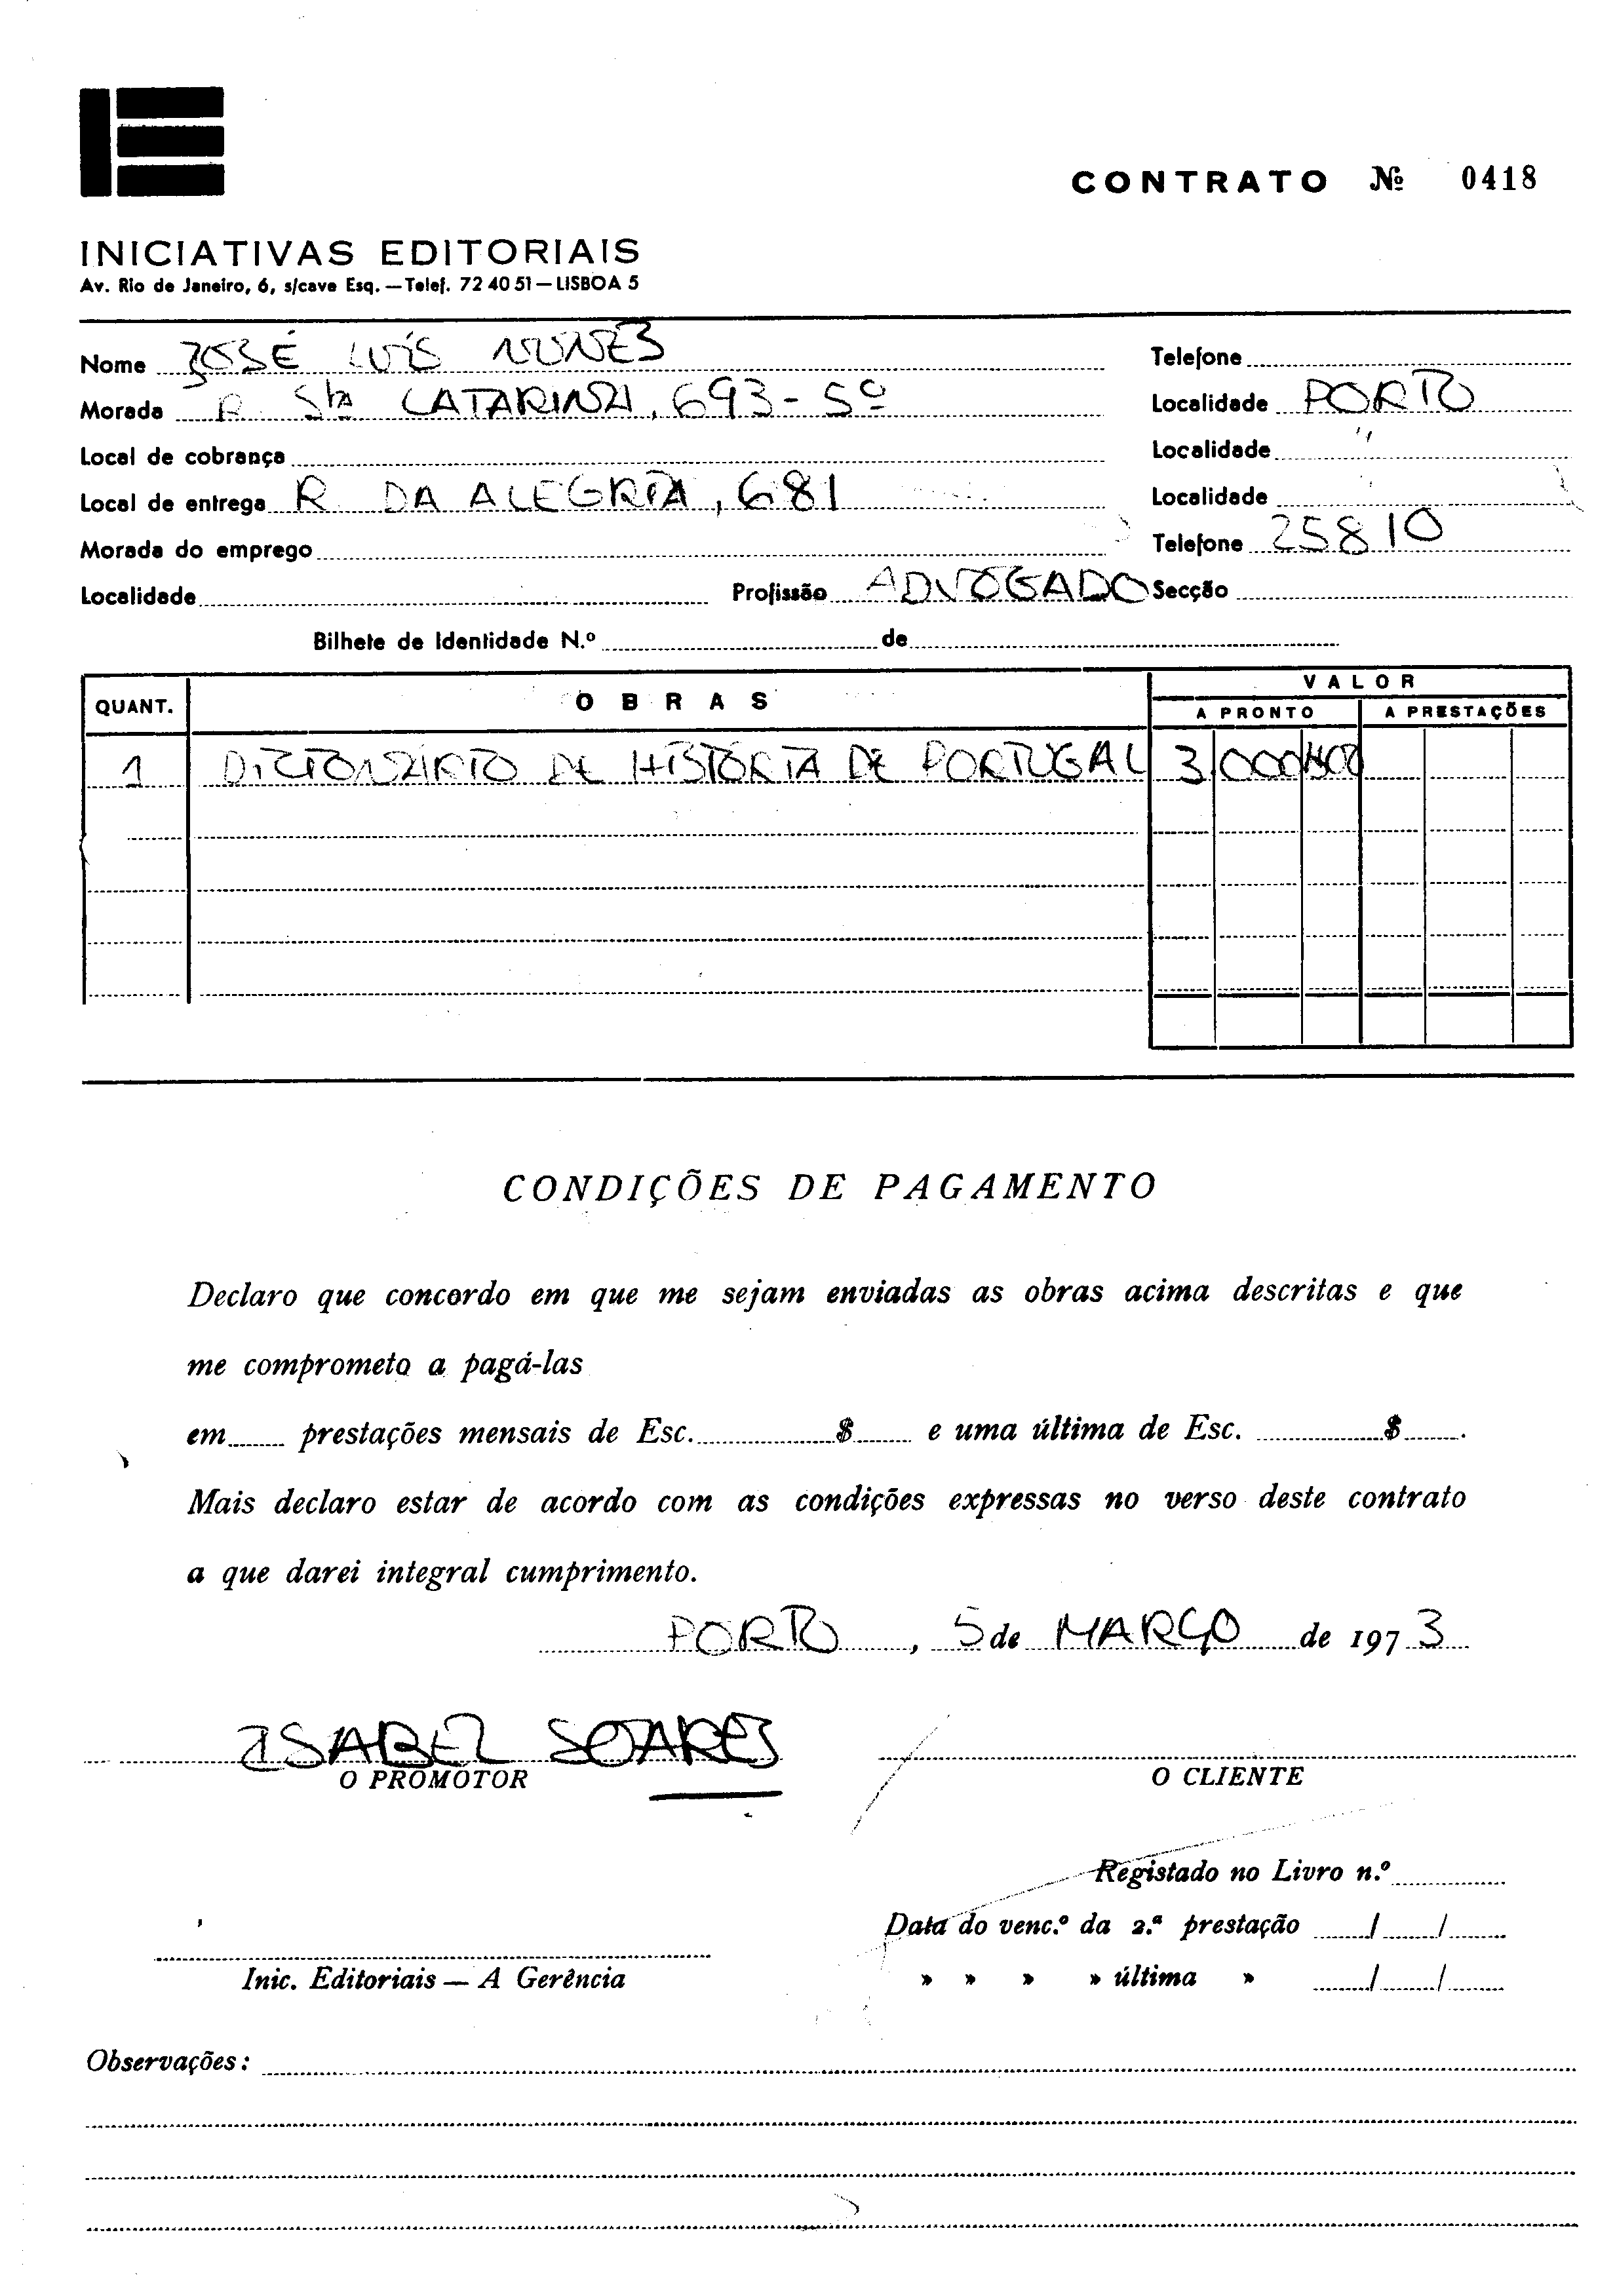 CONTRATO Nº 0418
INICIATIVAS EDITORIAIS
Av. Rio de Janeiro, 6, s/cave Esq. — Telef. 72 40 51 — LISBOA 5
Nome JOSÉ LUÍS NUNES Telefone
Morada R. Sta CATARINA, 693 - 5º Localidade PORTO
Local de cobrança Localidade "
Local de entrega R DA ALEGRIA, 681 Localidade
Morada do emprego Telefone 25810
Localidade Profissão ADVOGADO Secção
Bilhete de Identidade N.º de
QUANT. OBRAS VALOR
A PRONTO A PRESTAÇÕES
1 DICIONÁRIO DE HISTÓRIA DE PORTUGAL 3 000$00
CONDIÇÕES DE PAGAMENTO
Declaro que concordo em que me sejam enviadas as obras acima descritas e que
me comprometo a pagá-las
em prestações mensais de Esc. $ e uma última de Esc. $ .
Mais declaro estar de acordo com as condições expressas no verso deste contrato
a que darei integral cumprimento.
PORTO , 5 de MARÇO de 1973
ISABEL SOARES
O PROMOTOR O CLIENTE
Registado no Livro n.º
Data do venc.º da 2.ª prestação / /
Inic. Editoriais — A Gerência » » » » última » / /
Observações: